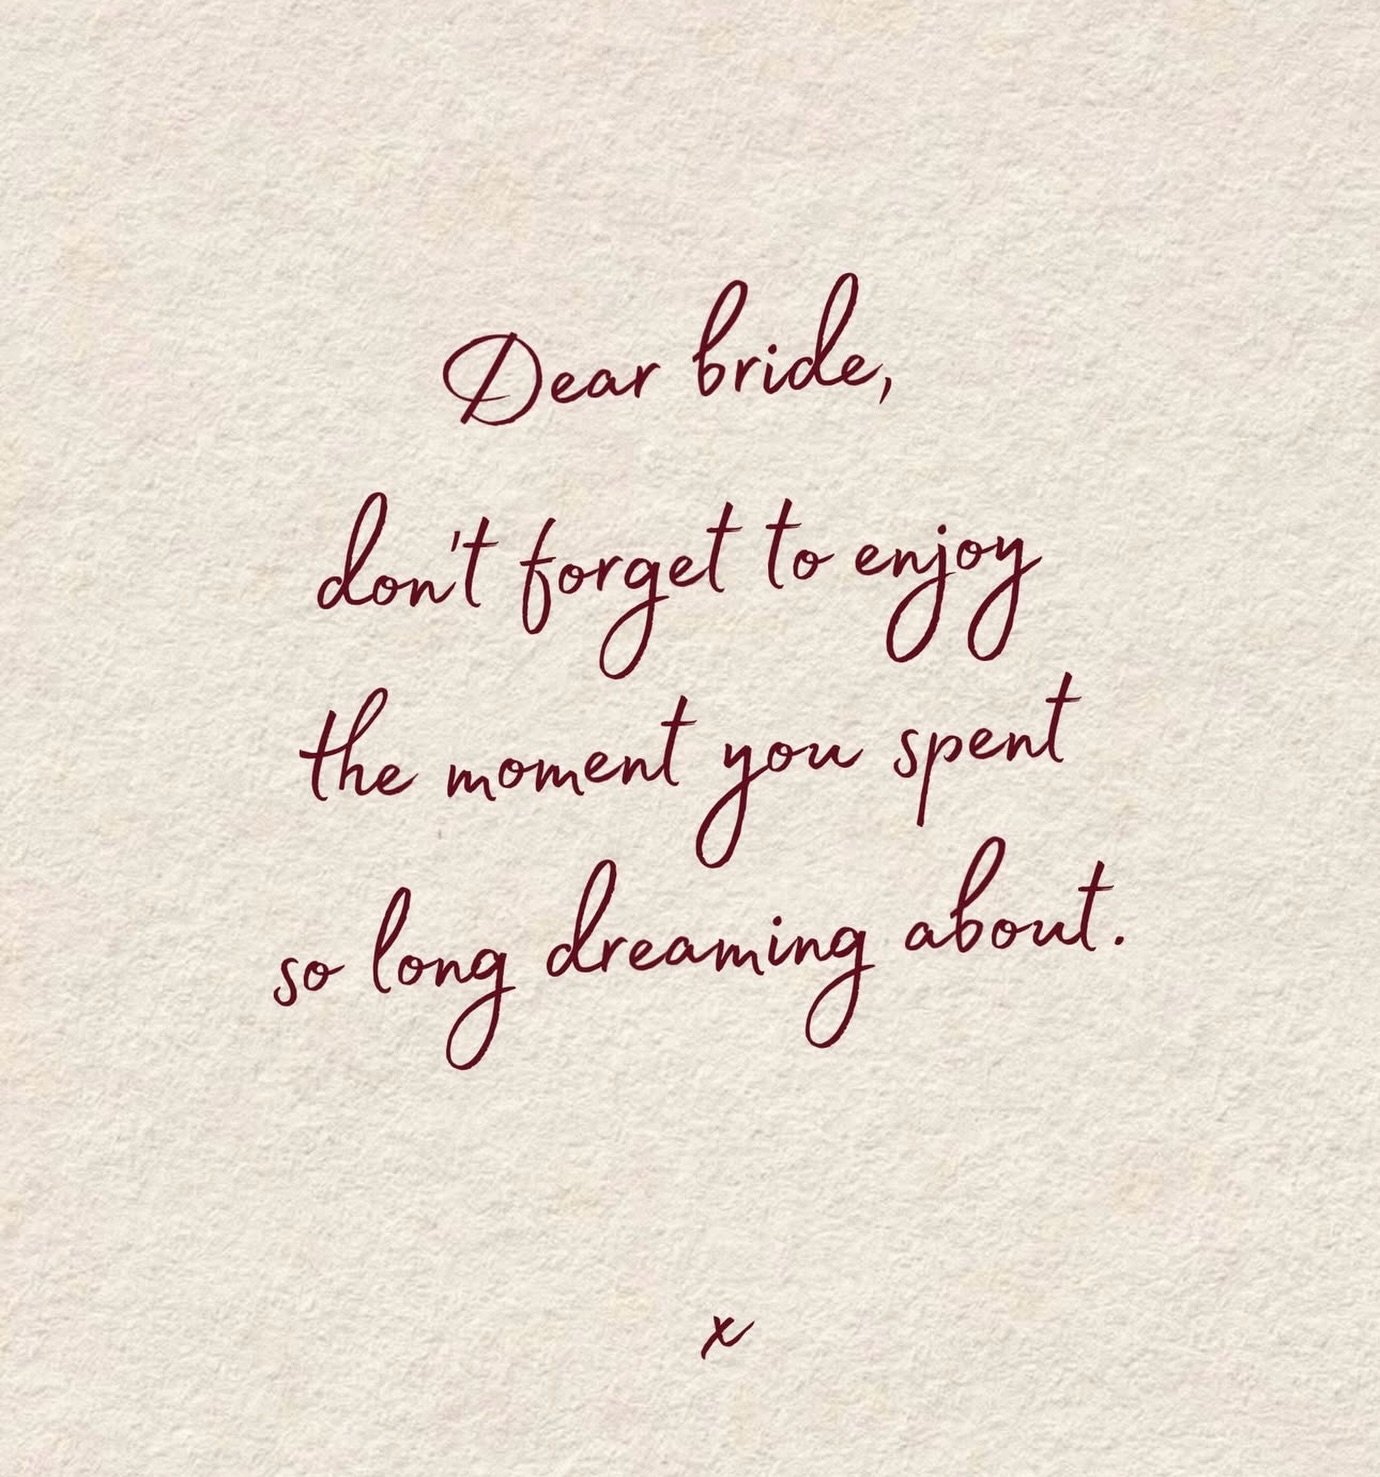 Dear bride,
don't forget to enjoy
the moment you spent
so long dreaming about.
x